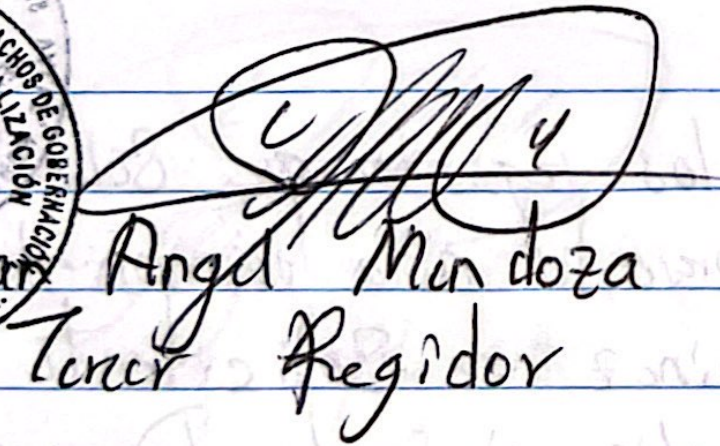 CHOS DE GOBERNACIÓN
LIZACIÓN
Angel Mendoza
Tercer Regidor